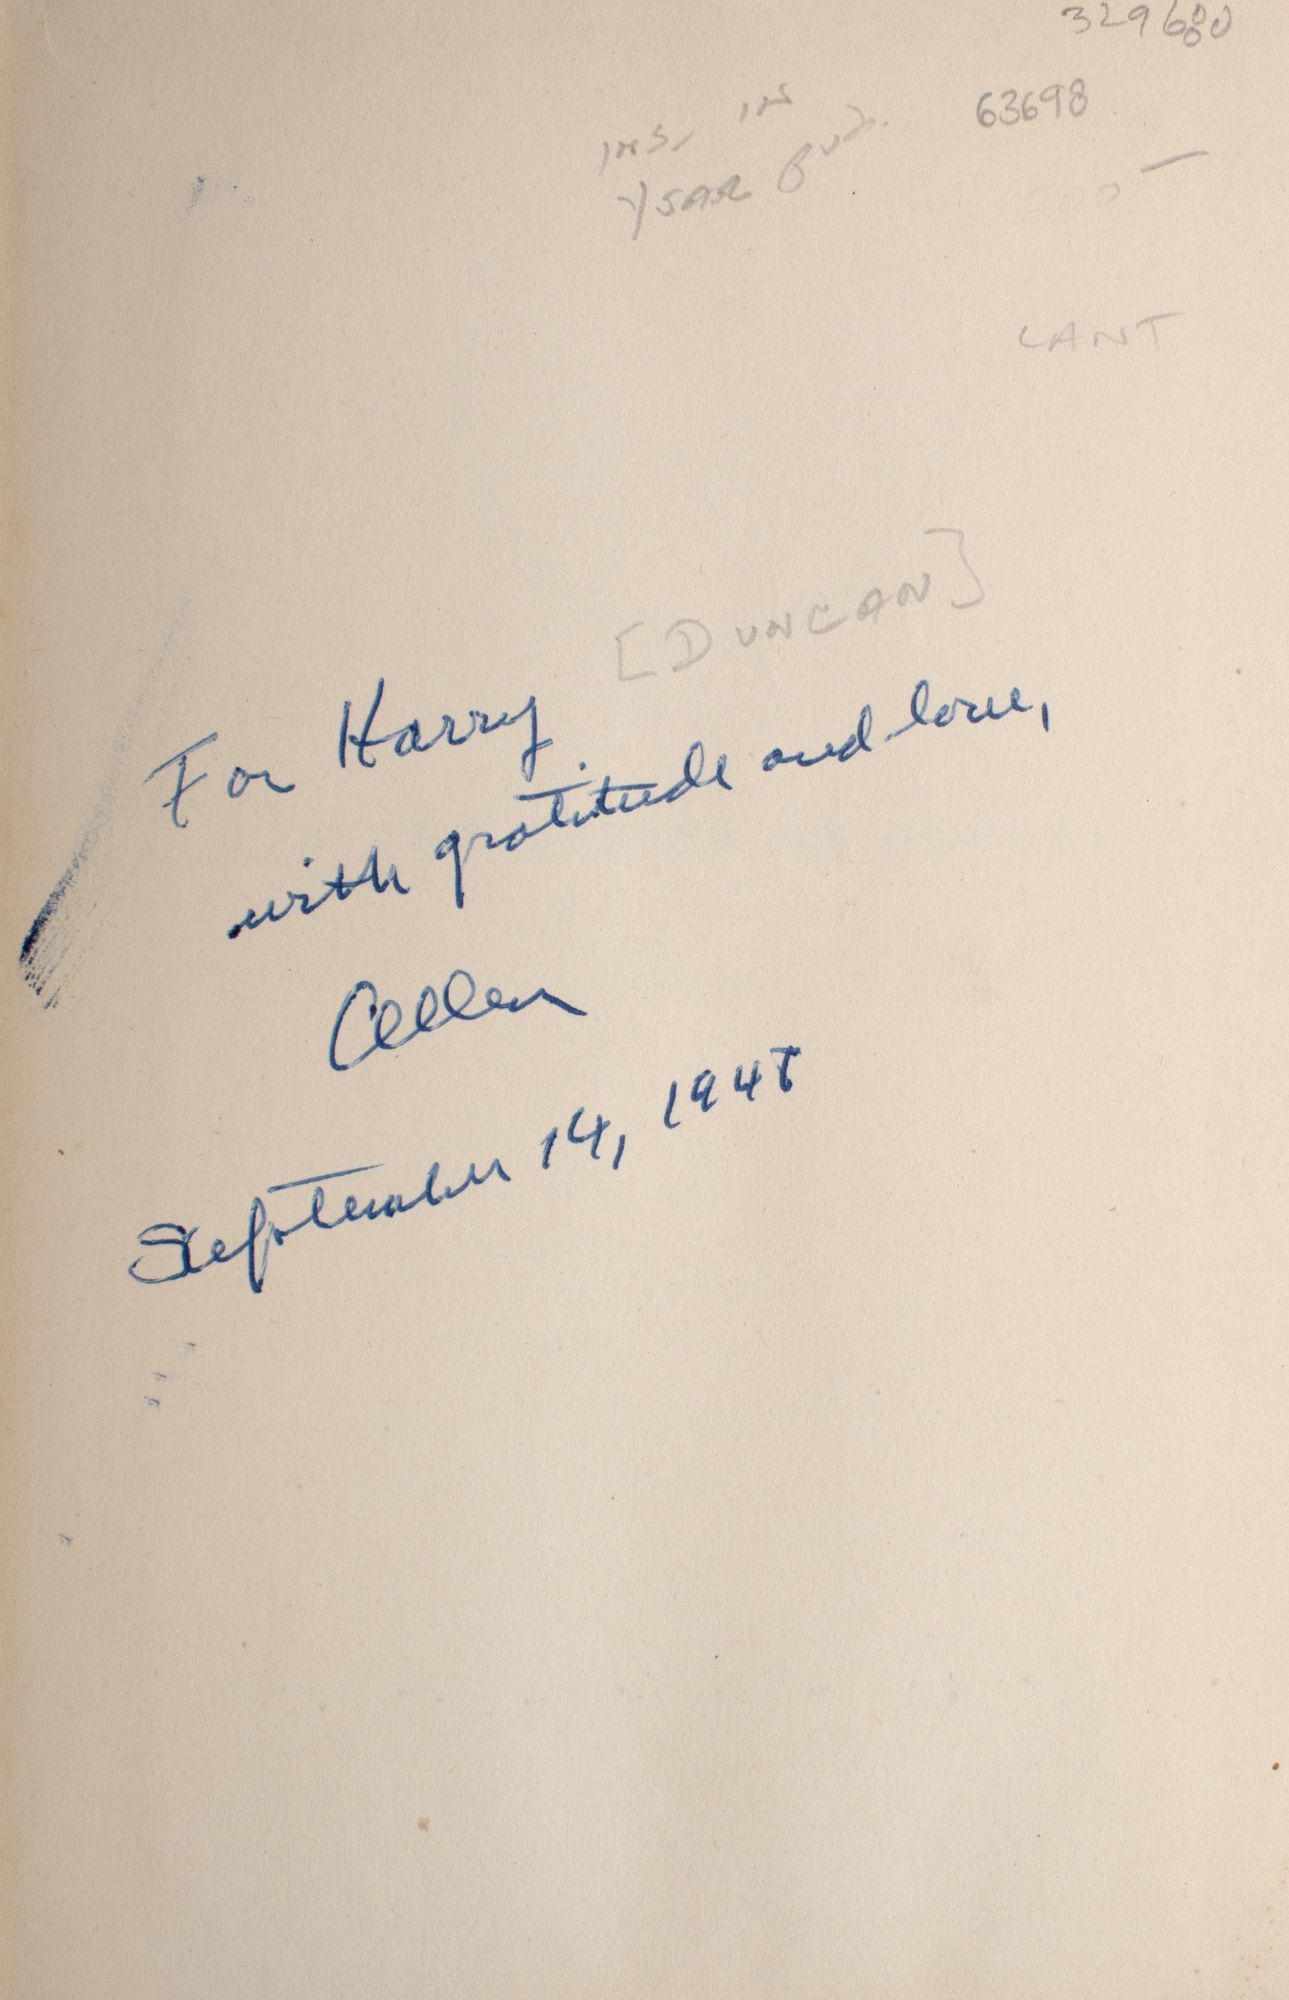 63698
INS. IN
YEAR PUB.
LANT
[DUNCAN]
For Harry
with gratitude and love,
Allen
September 14, 1948